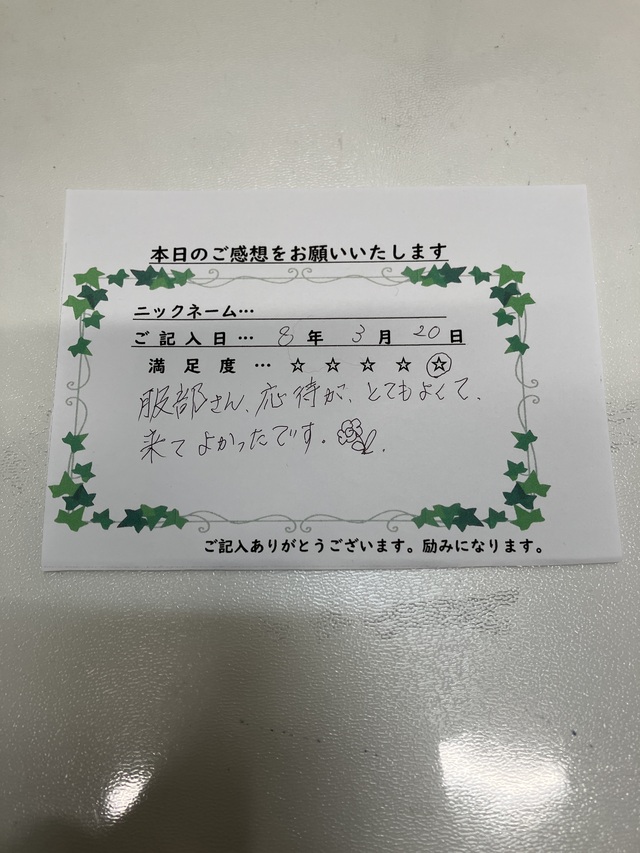 本日のご感想をお願いいたします
ニックネーム…
ご記入日… 8年 3月 20日
満足度 … ☆ ☆ ☆ ☆ ☆
服部さん、応待が、とてもよくて、
来てよかったです。
ご記入ありがとうございます。励みになります。